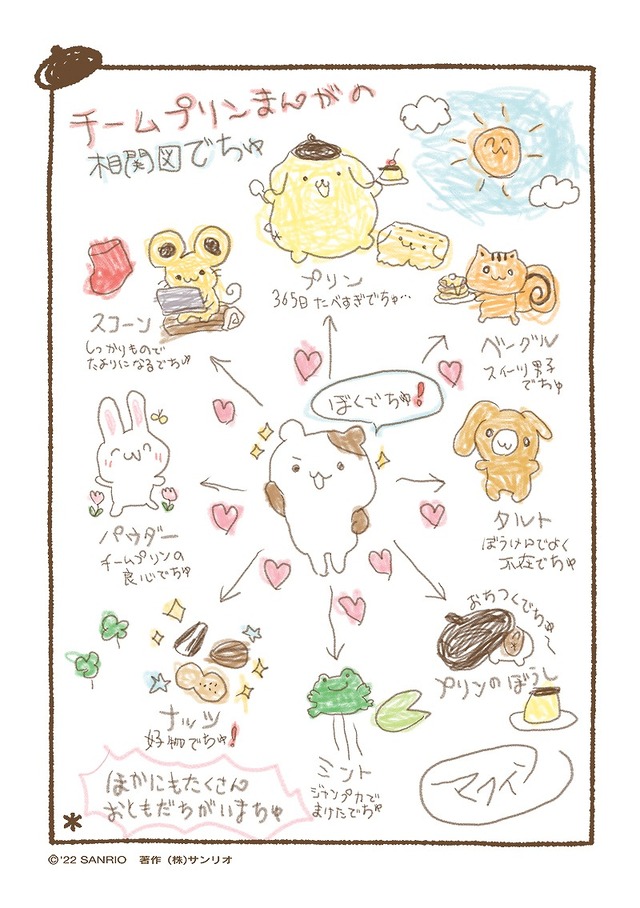 チームプリンまんがの
相関図でちゅ
プリン
365日たべすぎでちゅ…
スコーン
しっかりもので
たよりになるでちゅ
ベーグル
スイーツ男子
でちゅ
ぼくでちゅ!
パウダー
チームプリンの
良心でちゅ
タルト
ぼうけんでよく
不在でちゅ
ナッツ
好物でちゅ!
ミント
ジャンプ力で
まけたでちゅ
おちつくでちゅ~
プリンのぼうし
ほかにもたくさん
おともだちがいまちゅ
マフィン
©'22 SANRIO 著作 (株)サンリオ